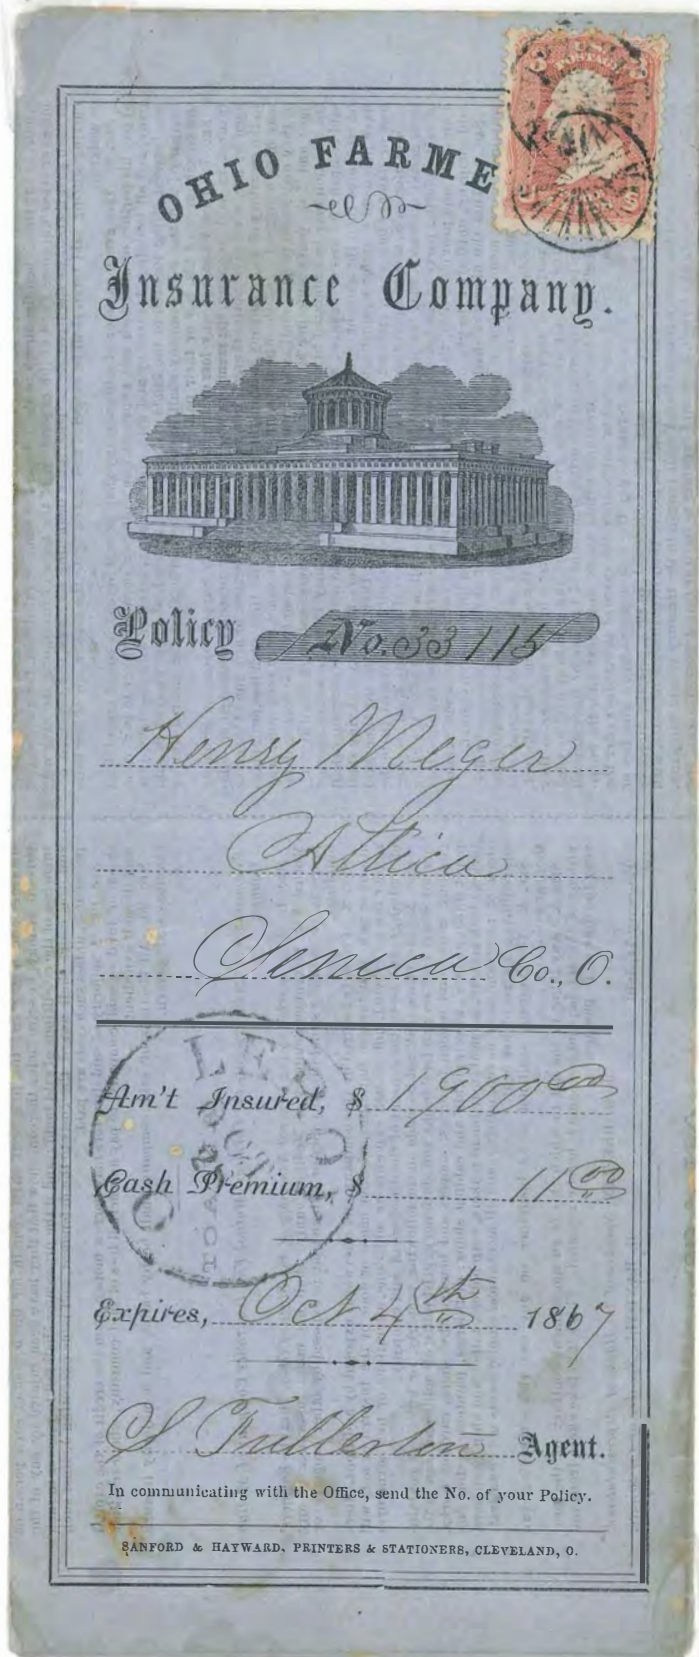 U.S.
POSTAGE
OHIO FARME
Insurance Company.
Policy No. 33115
Henry Meyer
Attica
Seneca Co., O.
Am't Insured, $ 1900 00
Cash Premium, $ 11 00
Expires, Oct 4th 1867
S Fullerton Agent.
In communicating with the Office, send the No. of your Policy.
SANFORD & HAYWARD, PRINTERS & STATIONERS, CLEVELAND, O.